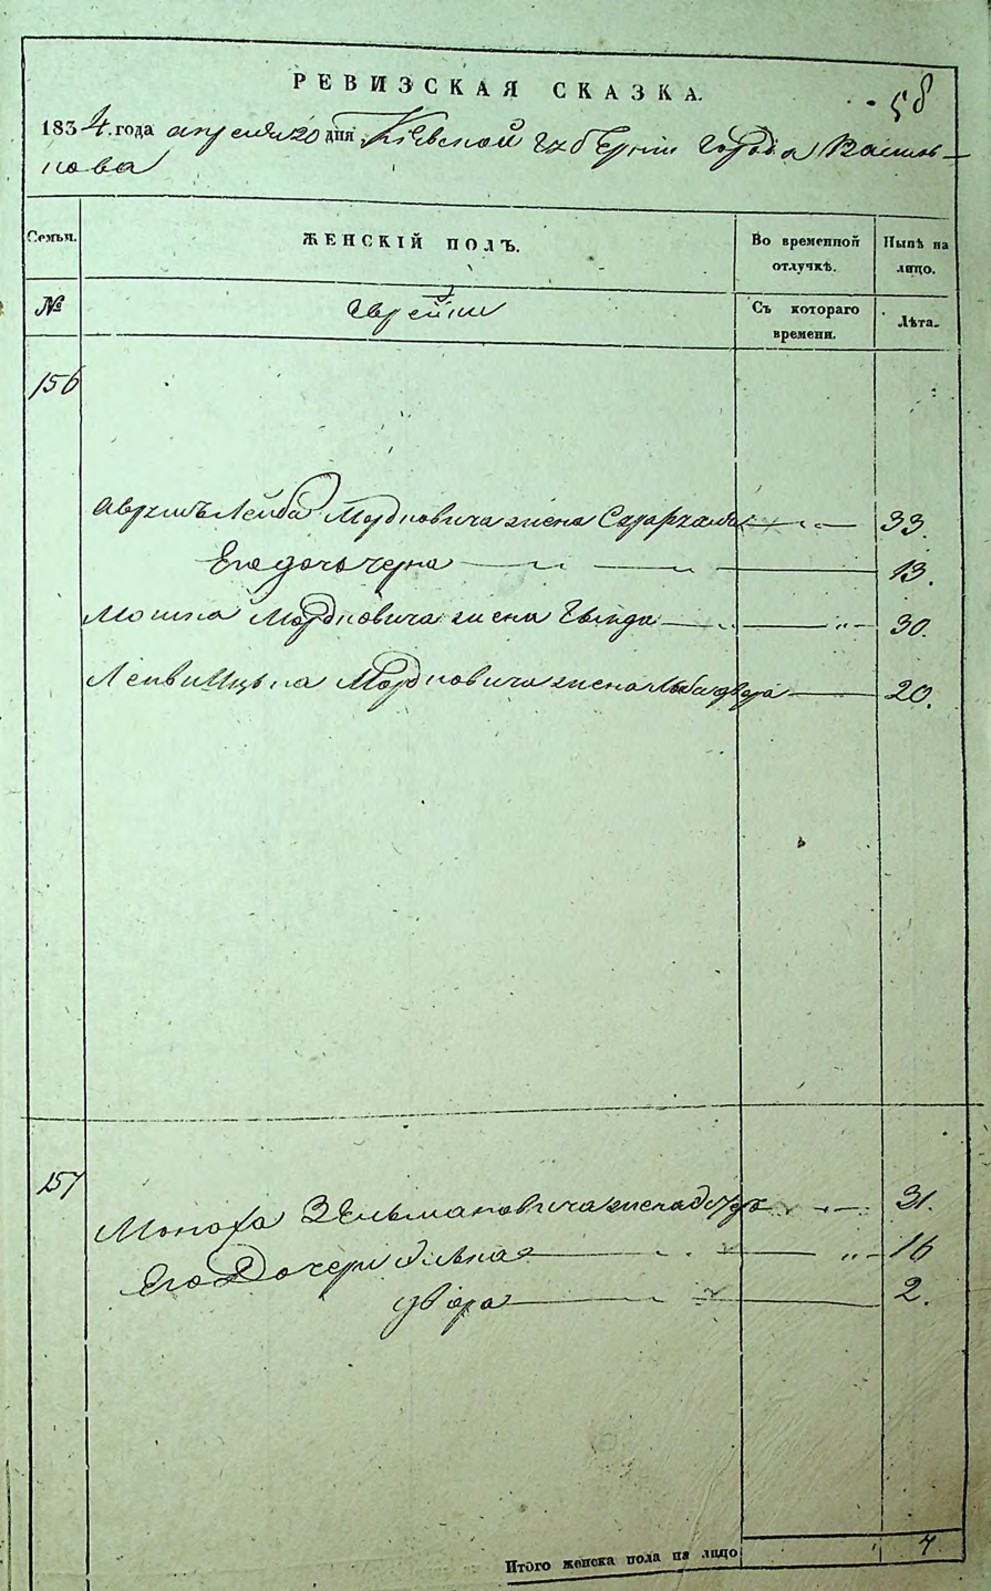 58
РЕВИЗСКАЯ СКАЗКА.
1834 года апреля 20 дня Кіевской Губерніи Города Василь-
кова
Семьи. ЖЕНСКІЙ ПОЛЪ. Во временной отлучкѣ. Нынѣ на лицо.
№ Еврейки Съ котораго времени. Лѣта.
156
Аврумъ Лейба Мордковича жена 33.
Его дочь Черна 13.
Мошка Мордковича жена 30.
Мордковича жена 20.
157
Монаха Зельмановича жена 31.
Его Дочери 16
Двора 2.
Итого женска пола на лицо 7